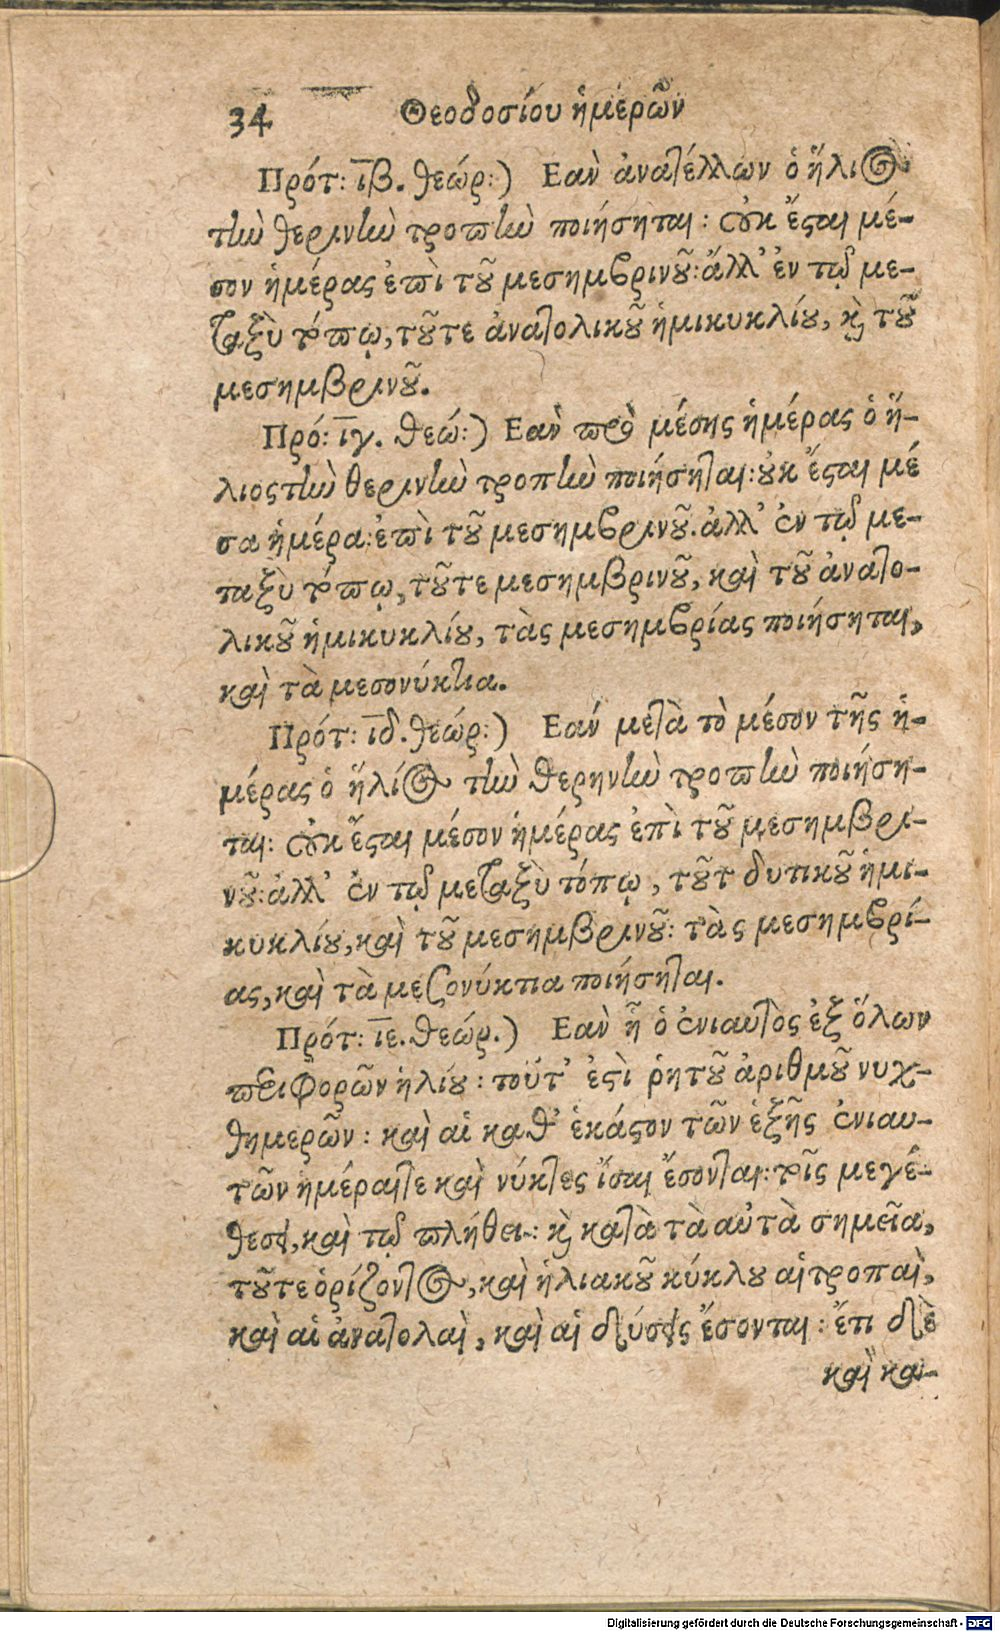 34 Θεοδοσίου ἡμερῶν
Πρότ: ιβ. θεώρ:) Εαν ἀνατέλλων ὁ ἥλιος
τὴν θερινὴν τροπὴν ποιήσηται: οὐκ ἔσται μέ-
σον ἡμέρας ἐπὶ τοῦ μεσημβρινοῦ: ἄλλ' ἐν τῷ με-
ταξὺ τόπῳ, τοῦτε ἀνατολικοῦ ἡμικυκλίου, καὶ τοῦ
μεσημβρινοῦ.
Πρό: ιγ. θεώ:) Εαν πρὸ μέσης ἡμέρας ὁ ἥ-
λιος τὴν θερινὴν τροπὴν ποιήσηται: οὐκ ἔσται μέ
σα ἡμέρα: ἐπὶ τοῦ μεσημβρινοῦ. ἀλλ' ἐν τῷ με-
ταξὺ τόπῳ, τοῦτε μεσημβρινοῦ, καὶ τοῦ ἀνατο-
λικοῦ ἡμικυκλίου, τὰς μεσημβρίας ποιήσηται,
καὶ τὰ μεσονύκτια.
Πρότ: ιδ. θεώρ:) Εαν μετὰ τὸ μέσον τῆς ἡ-
μέρας ὁ ἥλίος τὴν θερηνὴν τροπὴν ποιήση-
ται: οὐκ ἔσται μέσον ἡμέρας ἐπὶ τοῦ μεσημβρι-
νοῦ: ἀλλ' ἐν τῷ μεταξὺ τόπῳ, τοῦτ δυτικοῦ ἡμι-
κυκλίου, καὶ τοῦ μεσημβρινοῦ: τὰς μεσημβρί-
ας, καὶ τὰ μεσονύκτια ποιήσηται.
Πρότ: ιε. θεώρ.) Εαν ᾖ ὁ ἐνιαυτος ἐξ ὅλων
περιφορῶν ἡλίου: τούτ' ἐστὶ ῥητοῦ ἀριθμοῦ νυχ-
θημερῶν: καὶ αἱ καθ' ἑκάστον τῶν ἑξῆς ἐνιαυ-
τῶν ἡμέραιτε καὶ νύκτες ἴσαι ἔσονται: τοῖς μεγέ-
θεσι, καὶ τῷ πλήθει: καὶ κατὰ τὰ αὐτὰ σημεῖα,
τοῦτε ὁρίζοντος, καὶ ἡλιακοῦ κύκλου αἱ τροπαὶ,
καὶ αἱ ἀνατολαὶ, καὶ αἱ δύσεις ἔσονται: ἔτι δὲ
καὶ κα-
Digitalisierung gefördert durch die Deutsche Forschungsgemeinschaft - DFG